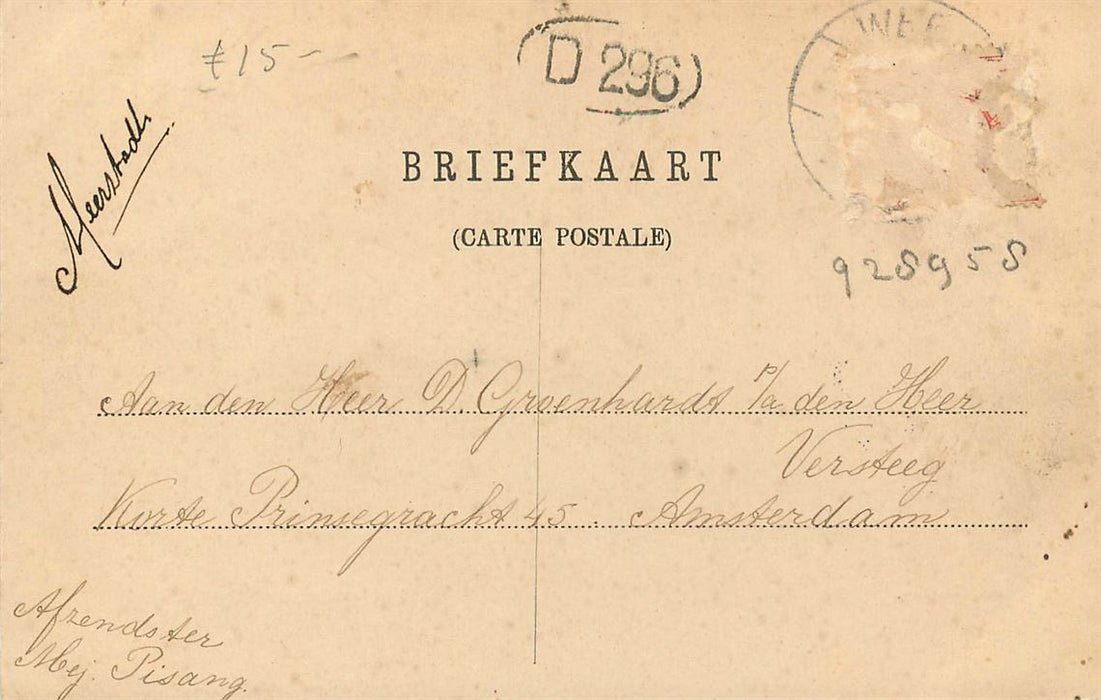 £15-
D 296
WEE
Meerstadt.
BRIEFKAART
(CARTE POSTALE)
928958
Aan den Heer D. Groenhardt p/a den Heer
Versteeg
Korte Prinsegracht 45. Amsterdam
Afzendster
Mej. Pisang.